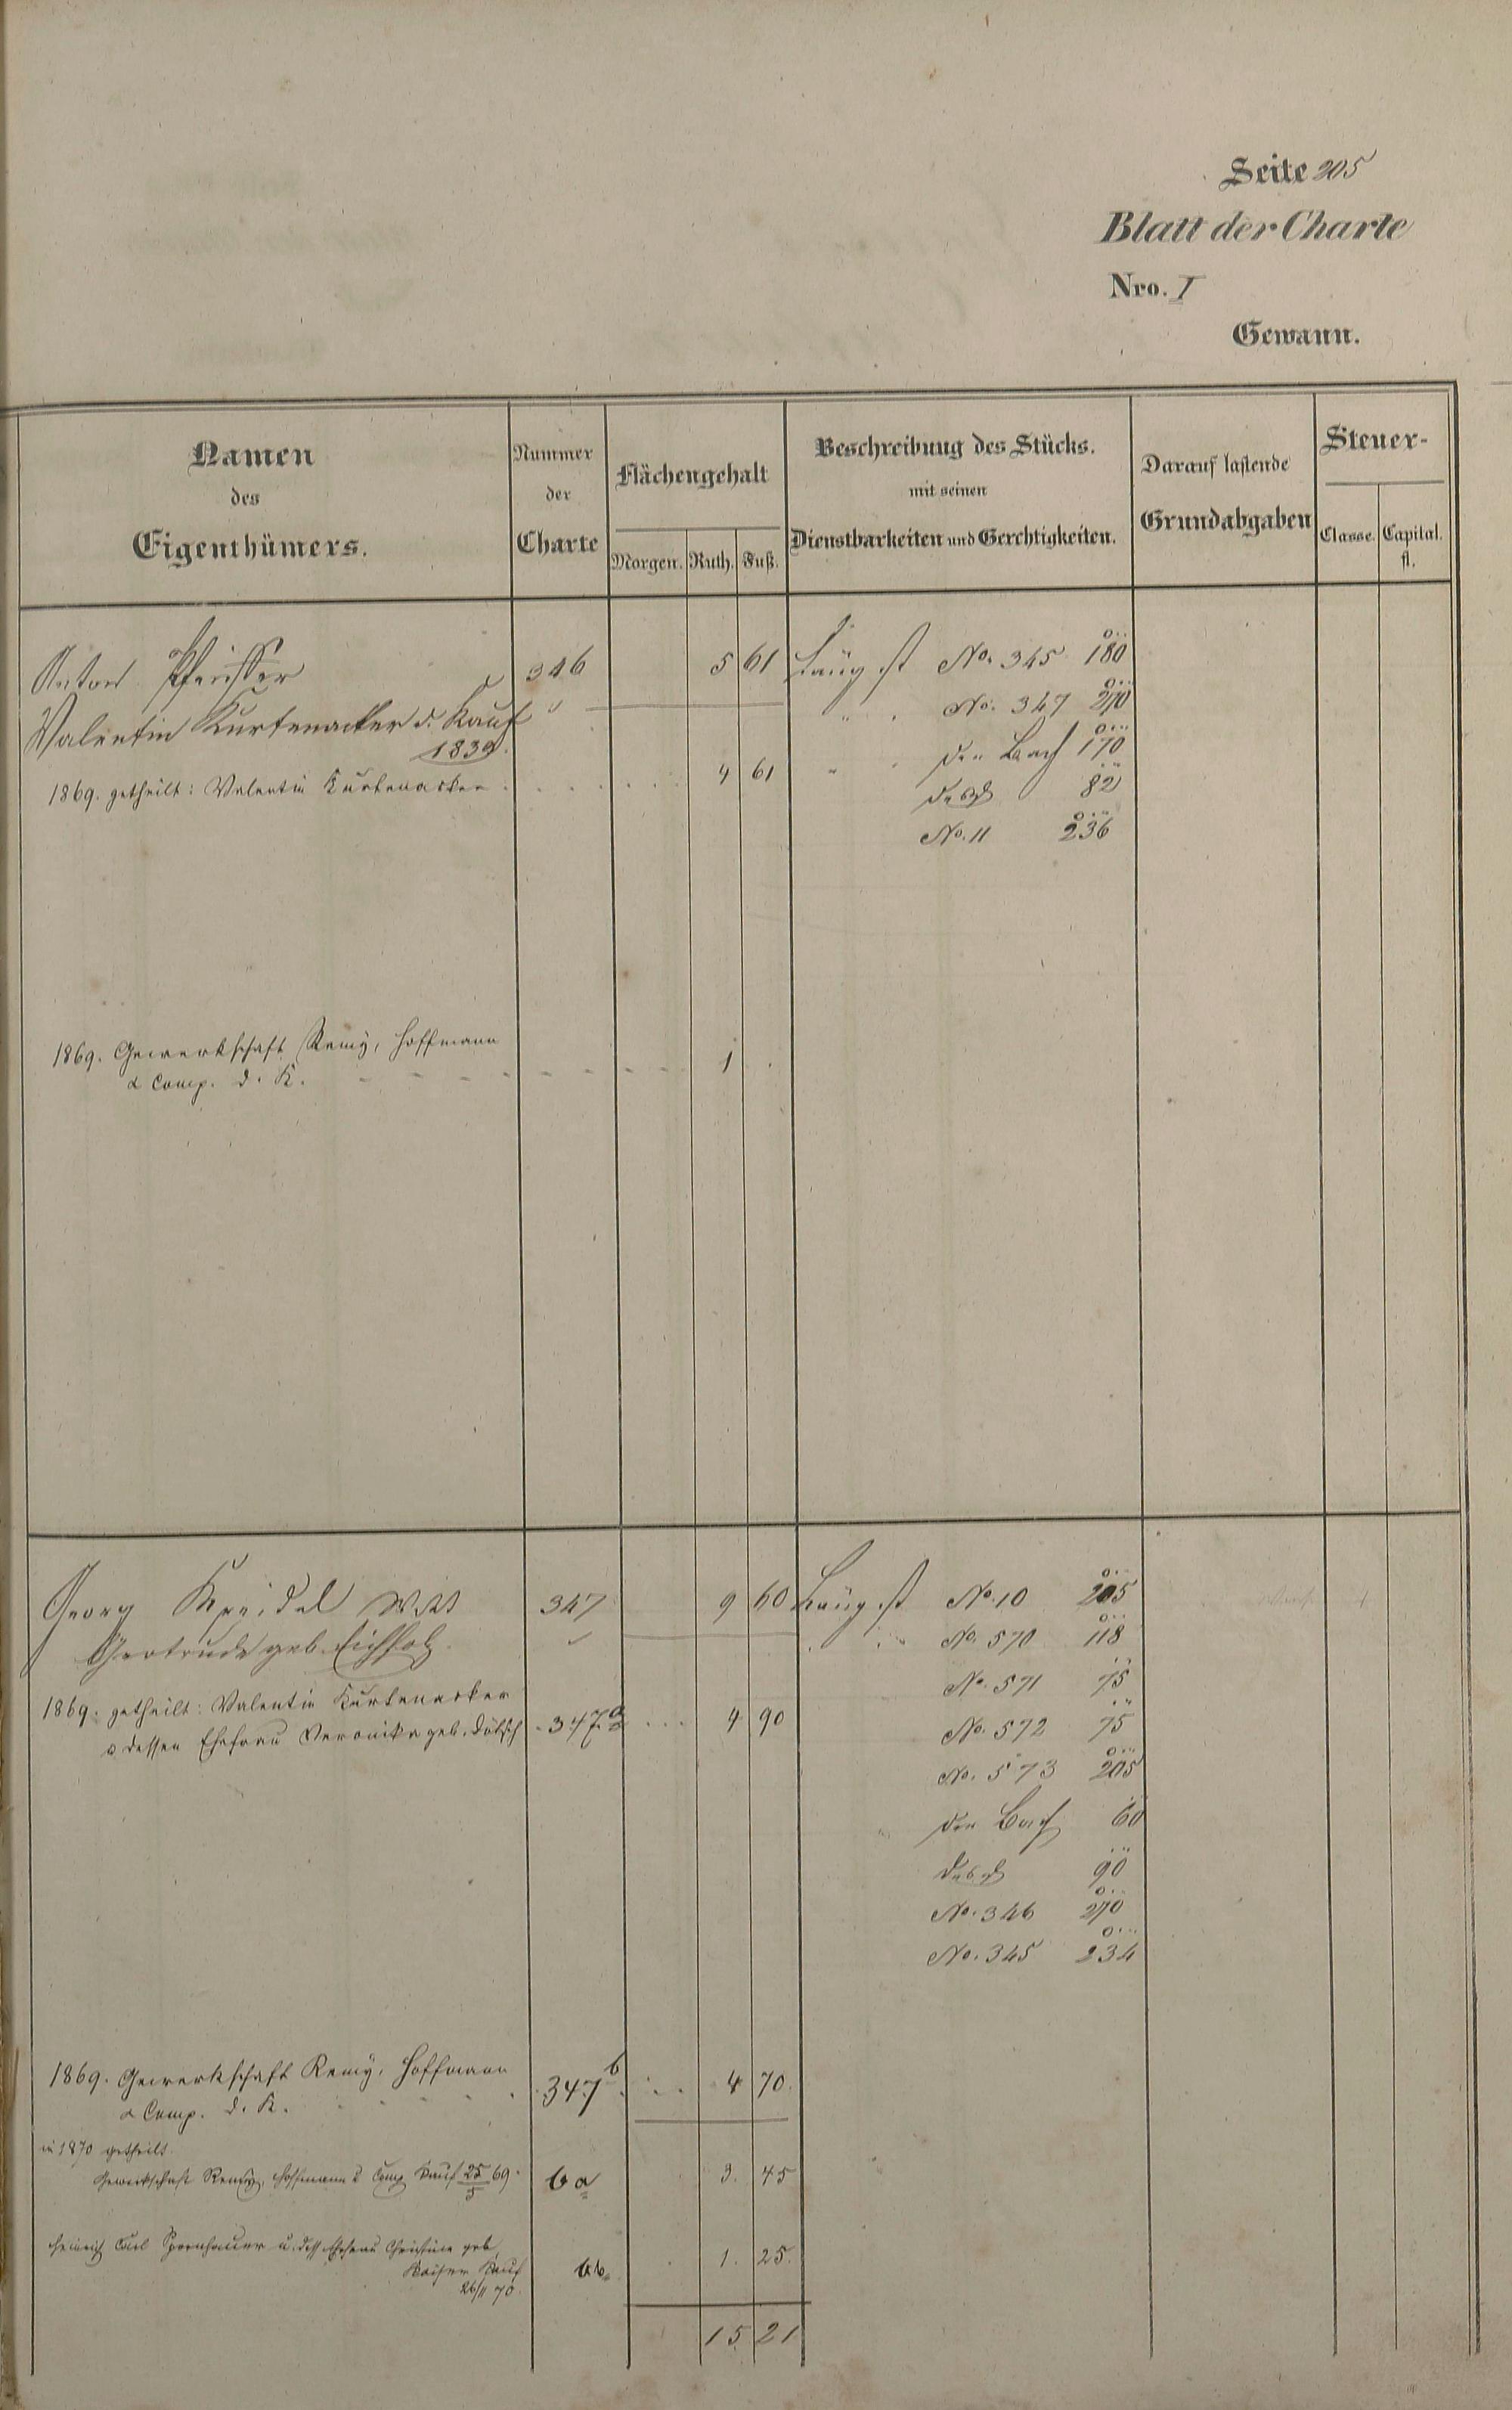 Seite 205
Blatt der Charte
Nro. I
Gewann.
Namen
des
Eigenthümers.
Nummer
der
Charte
Flächengehalt
Morgen. Ruth. Fuß.
Beschreibung des Stücks.
mit seinen
Dienstbarkeiten und Gerechtigkeiten.
Darauf lastende
Grundabgaben
Steuer-
Classe. Capital.
fl.
Anton 346 5 61 No. 345 180
Valentin Kurtenacker d. Kauf " No. 347 270
1839. der Bach 170
1869. getheilt: Valentin Kurtenacker 4 61 desgl 82
No. 11 236
1869. Gewerkschaft Remy, Hoffmann
& Comp. d. K. 1
Georg Kreidel Wtt 347 9 60 No. 10 205
Gertrude geb. Eichholz No. 570 118
No. 571 75
1869. getheilt: Valentin Kurtenacker
u. dessen Ehefrau Veronika geb. 347 a 4 90 No. 572 75
No. 573 205
der Bach 60
desgl 90
No. 346 270
No. 345 234
1869. Gewerkschaft Remy, Hoffmann
& Comp. d. K. 347 b 4 70
in 1870 getheilt
Gewerkschaft Remy, Hoffmann & Comp Kauf 25/5 69. b a 3. 45
Heinrich Carl u. dess. Ehefrau Christine geb.
Kaiser Kauf bb. 1. 25.
26/11 70.
15 21